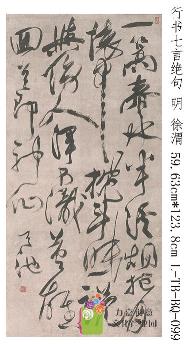 行书七言绝句 明 徐渭 59.63cm*123.8cm 1-TB-BQ-099
一篙春水半溪烟
抱月怀中枕斗眠
说与傍人浑不识
英雄回首即神仙
天池